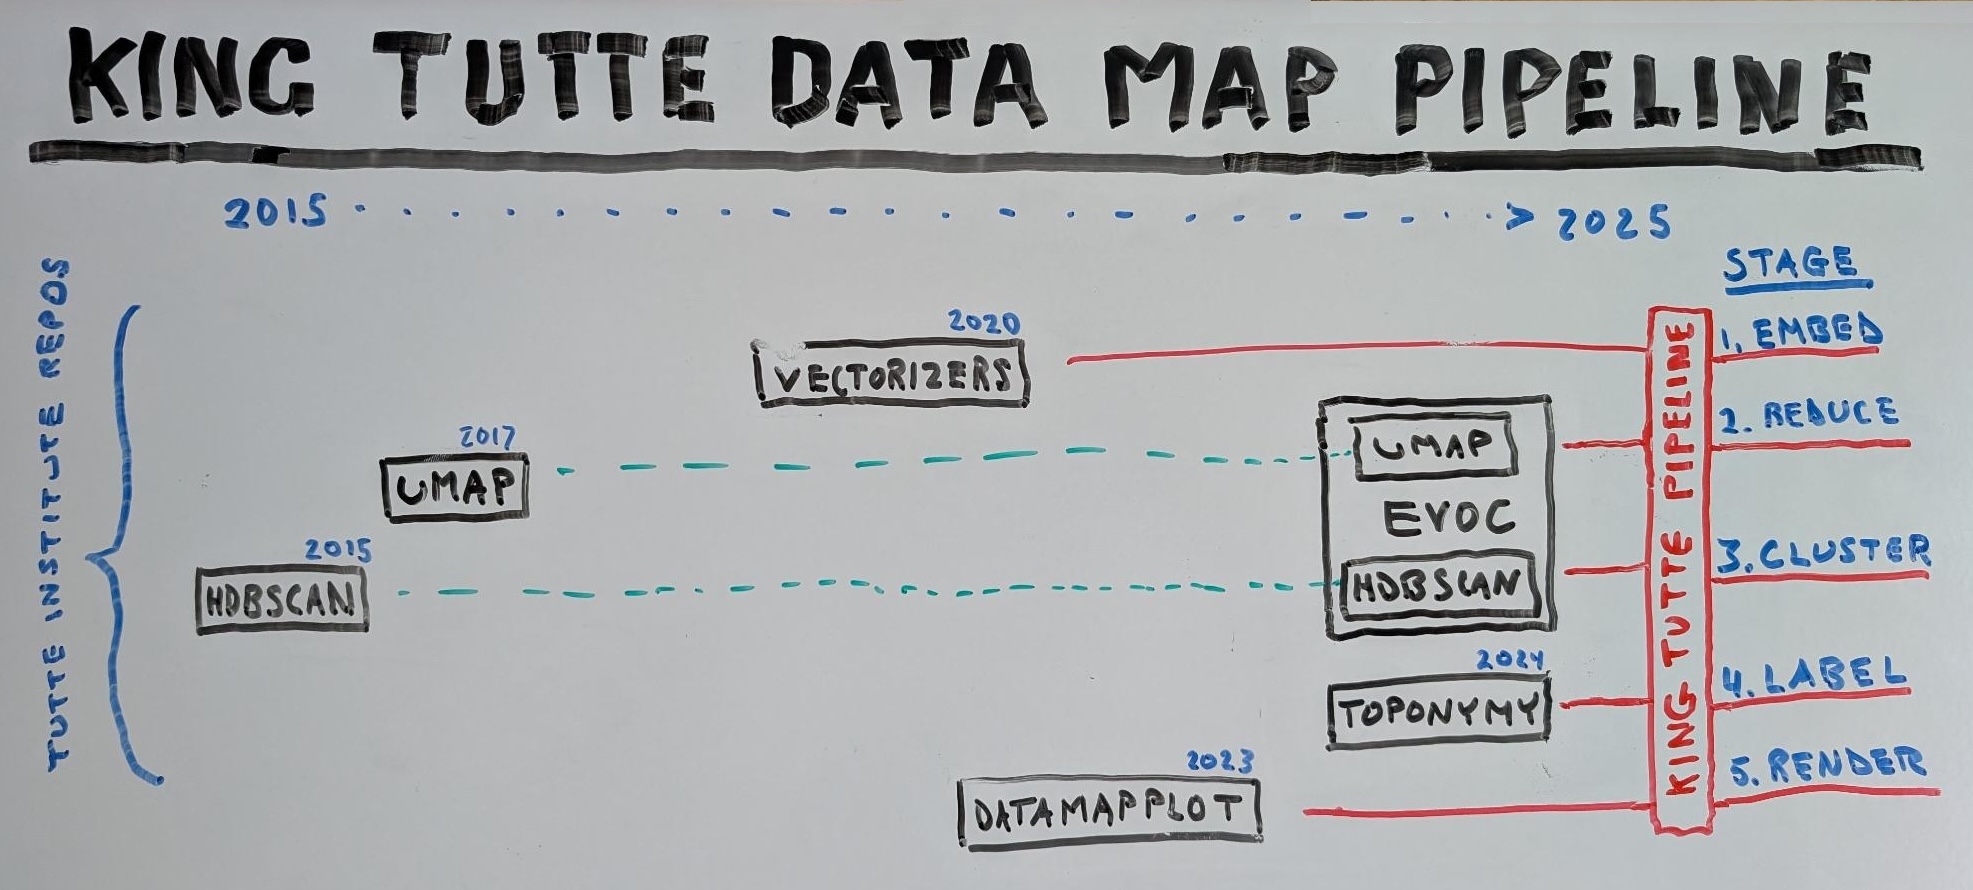 KING TUTTE DATA MAP PIPELINE
2015
2025
TUTTE INSTITUTE REPOS
STAGE
2020
VECTORIZERS
1. EMBED
2017
UMAP
UMAP
2. REDUCE
EVOC
2015
HDBSCAN
HDBSCAN
3. CLUSTER
2024
TOPONYMY
4. LABEL
2023
DATAMAPPLOT
5. RENDER
KING TUTTE PIPELINE